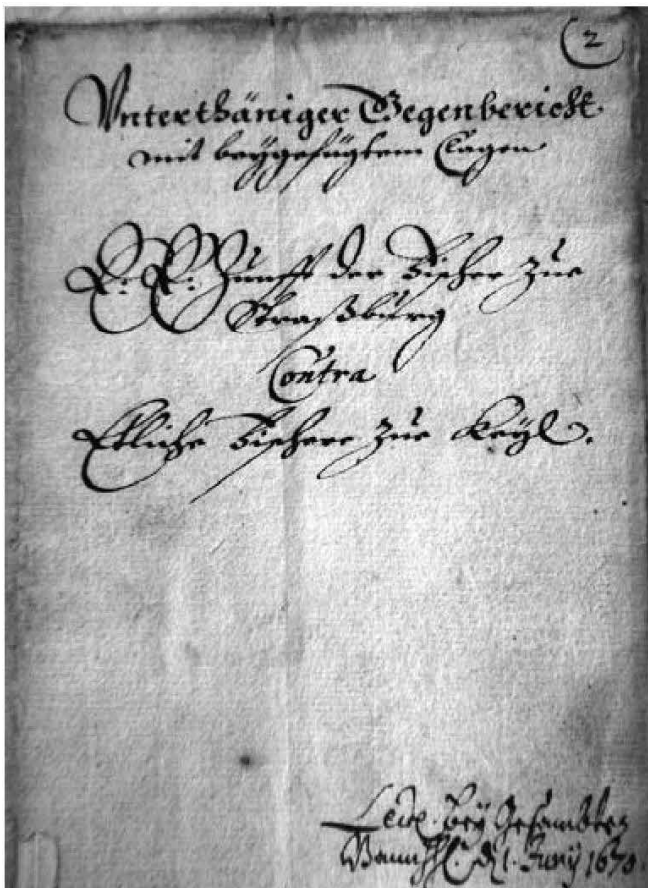 (2
Vnterthäniger Gegenbericht
mit beygefügtem Clagen
E. E. Zunfft der Fischer zue
Straßburg
Contra
Etliche Fischere zue Keyl.
bey Gesambten
d. 1. Juny 1670.